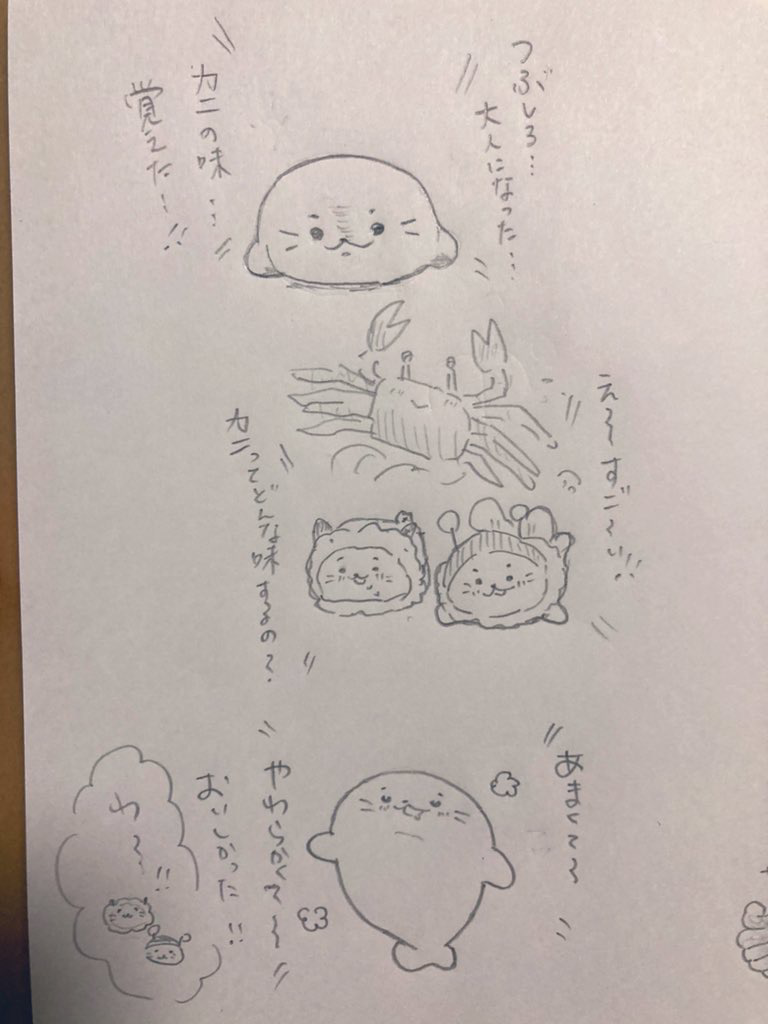 つぶしろ…
大人になった…
カニの味…
覚えた…!!
え〜すご〜い!!
カニってどんな味するの?
あまくて〜
やわらかくて〜
おいしかった!!
わ〜!!